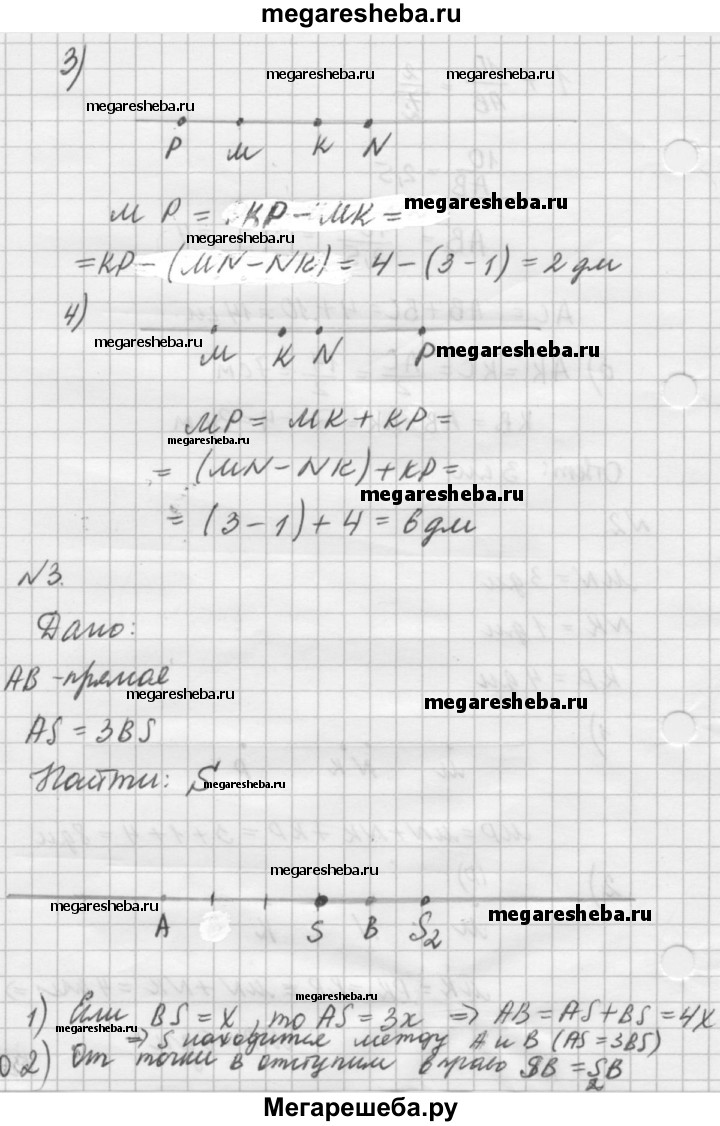 megaresheba.ru
3)
megaresheba.ru megaresheba.ru
megaresheba.ru
P M K N
MP = KP - MK = megaresheba.ru
megaresheba.ru
= KP - (MN - NK) = 4 - (3 - 1) = 2 дм
4)
megaresheba.ru M K N P megaresheba.ru
MP = MK + KP =
megaresheba.ru
= (MN - NK) + KP =
megaresheba.ru
= (3 - 1) + 4 = 6 дм
N3.
Дано:
AB - прямая
megaresheba.ru megaresheba.ru
AS = 3BS
Найти: S
megaresheba.ru
megaresheba.ru
megaresheba.ru A S B S2 megaresheba.ru
megaresheba.ru
1) Если BS = x, то AS = 3x ⇒ AB = AS + BS = 4x
megaresheba.ru ⇒ S находится между A и B (AS = 3BS)
2) От точки B отступим вправо SB = S2B
megaresheba.ru
Мегарешеба.ру